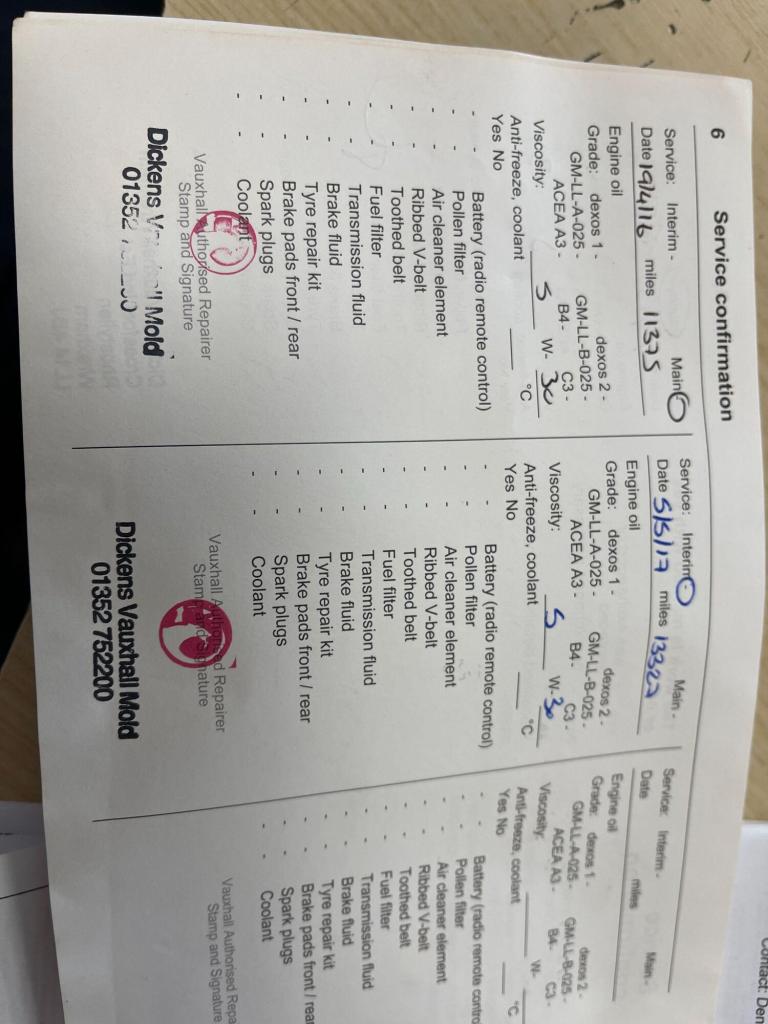 6 Service confirmation
Service: Interim - Main
Date 19/4/16 miles 11375
Engine oil
Grade: dexos 1 - dexos 2 -
GM-LL-A-025 - GM-LL-B-025 -
ACEA A3 - B4 - C3 -
Viscosity: 5 W- 30
Anti-freeze, coolant °C
Yes No
- - Battery (radio remote control)
- - Pollen filter
- - Air cleaner element
- - Ribbed V-belt
- - Toothed belt
- - Fuel filter
- - Transmission fluid
- - Brake fluid
- - Tyre repair kit
- - Brake pads front / rear
- - Spark plugs
- - Coolant
Vauxhall Authorised Repairer
Stamp and Signature
Dickens Vauxhall Mold
01352
Service: Interim Main -
Date 5/5/17 miles 13322
Engine oil
Grade: dexos 1 - dexos 2 -
GM-LL-A-025 - GM-LL-B-025 -
ACEA A3 - B4 - C3 -
Viscosity: 5 W- 30
Anti-freeze, coolant °C
Yes No
- - Battery (radio remote control)
- - Pollen filter
- - Air cleaner element
- - Ribbed V-belt
- - Toothed belt
- - Fuel filter
- - Transmission fluid
- - Brake fluid
- - Tyre repair kit
- - Brake pads front / rear
- - Spark plugs
- - Coolant
Vauxhall Authorised Repairer
Stamp and Signature
Dickens Vauxhall Mold
01352 752200
Service: Interim - Main -
Date miles
Engine oil
Grade: dexos 1 - dexos 2 -
GM-LL-A-025 - GM-LL-B-025 -
ACEA A3 - B4 - C3 -
Viscosity: W-
Anti-freeze, coolant °C
Yes No
- - Battery (radio remote contro
- - Pollen filter
- - Air cleaner element
- - Ribbed V-belt
- - Toothed belt
- - Fuel filter
- - Transmission fluid
- - Brake fluid
- - Tyre repair kit
- - Brake pads front / rear
- - Spark plugs
- - Coolant
Vauxhall Authorised Repa
Stamp and Signature
Contact: Den